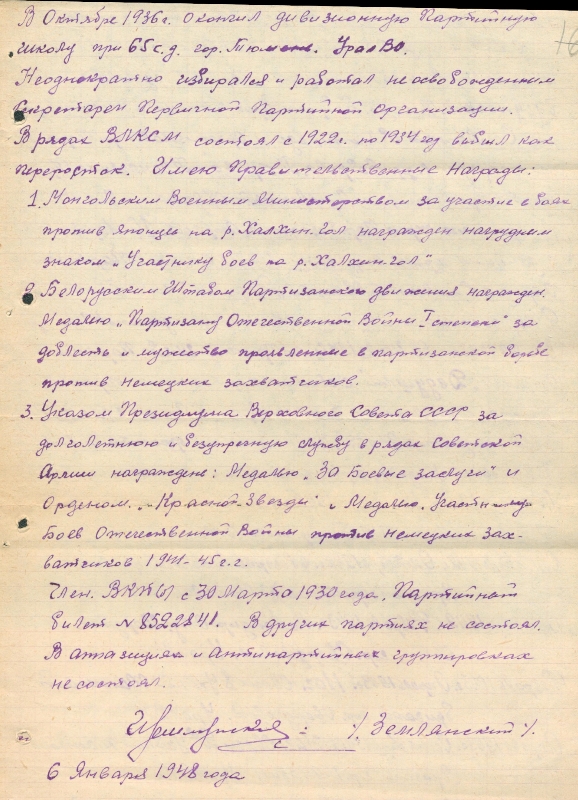 В Октябре 1936г. окончил дивизионную Партийную
школу при 65 с.д. гор. Тюмень. УралВО.
Неоднократно избирался и работал неосвобожденным
Секретарем Первичной Партийной организации.
В рядах ВЛКСМ состоял с 1922г. по 1934 год выбыл как
переросток. Имею Правительственные Награды:
1. Монгольским Военным Министерством за участие в боях
против Японцев на р. Халхин-гол награжден нагрудным
знаком „Участнику боев на р. Халхин-гол"
2. Белорусским Штабом Партизанского движения награжден
Медалью „Партизану Отечественной Войны I степени" за
доблесть и мужество проявленные в партизанской борьбе
против немецких захватчиков.
3. Указом Президиума Верховного Совета СССР за
долголетнюю и безупречную службу в рядах Советской
Армии награждены: Медалью „За Боевые заслуги" и
Орденом „Красной Звезды" и Медалью
Боев Отечественной Войны против немецких зах-
ватчиков 1941-45 г.г.
Член ВКП(б) с 30 Марта 1930 года, Партийный
билет № 8522841. В других партиях не состоял.
В и Антипартийных группировках
не состоял.
/Землянский/.
6 Января 1948 года